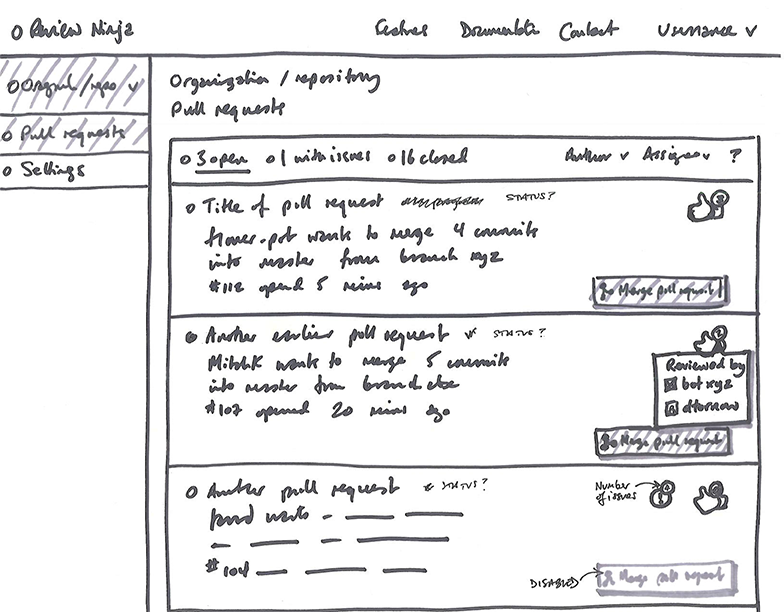 Review Ninja
Features Documentation Contact Username v
Orgnl/repo v
Pull requests
Settings
Organization / repository
Pull requests
3 open 1 with issues 16 closed Author v Assignee v ?
Title of pull request STATUS?
flower-pot wants to merge 4 commits
into master from branch xyz
#112 opend 5 mins ago
Merge pull request
Another earlier pull request STATUS?
MitchK wants to merge 5 commits
into master from branch
#107 opened 20 mins ago
Reviewed by
bot xyz
dtornow
Merge pull request
Another pull request STATUS?
wants
#104
Number
of issues
DISABLED
Merge pull request